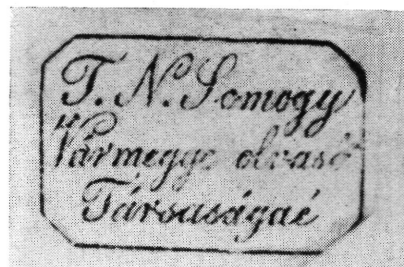 T. N. Somogy
Vármegye olvasó
Társaságaé